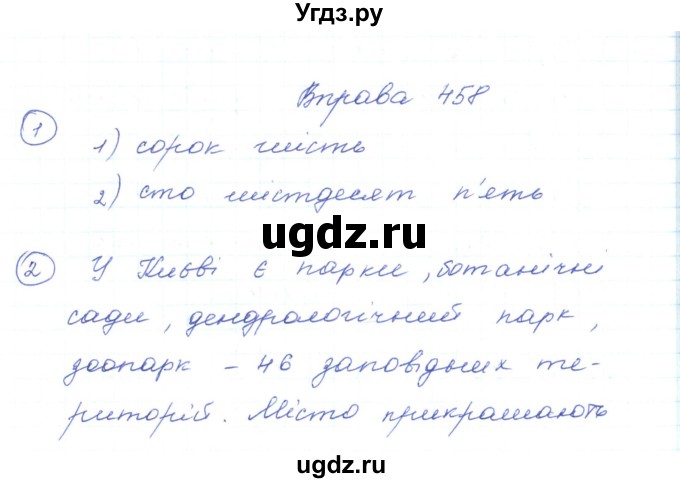 Угдз.ру
Вправа 458
1
1) сорок шість
2) сто шістдесят п'ять
ugdz.ru
2 У Києві є парки, ботанічні
сади, дендрологічний парк,
зоопарк – 46 заповідних те-
риторій. Місто прикрашають
ugdz.ru